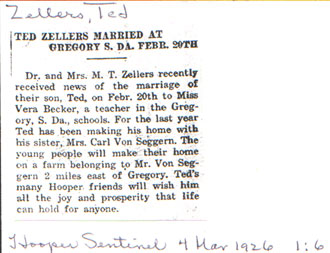 Zellers, Ted
TED ZELLERS MARRIED AT
GREGORY S. DA. FEBR. 20TH
Dr. and Mrs. M. T. Zellers recently
received news of the marriage of
their son, Ted, on Febr. 20th to Miss
Vera Becker, a teacher in the Greg-
ory, S. Da., schools. For the last year
Ted has been making his home with
his sister, Mrs. Carl Von Seggern. The
young people will make their home
on a farm belonging to Mr. Von Seg-
gern 2 miles east of Gregory. Ted's
many Hooper friends will wish him
all the joy and prosperity that life
can hold for anyone.
Hooper Sentinel 4 Mar 1926 1:6